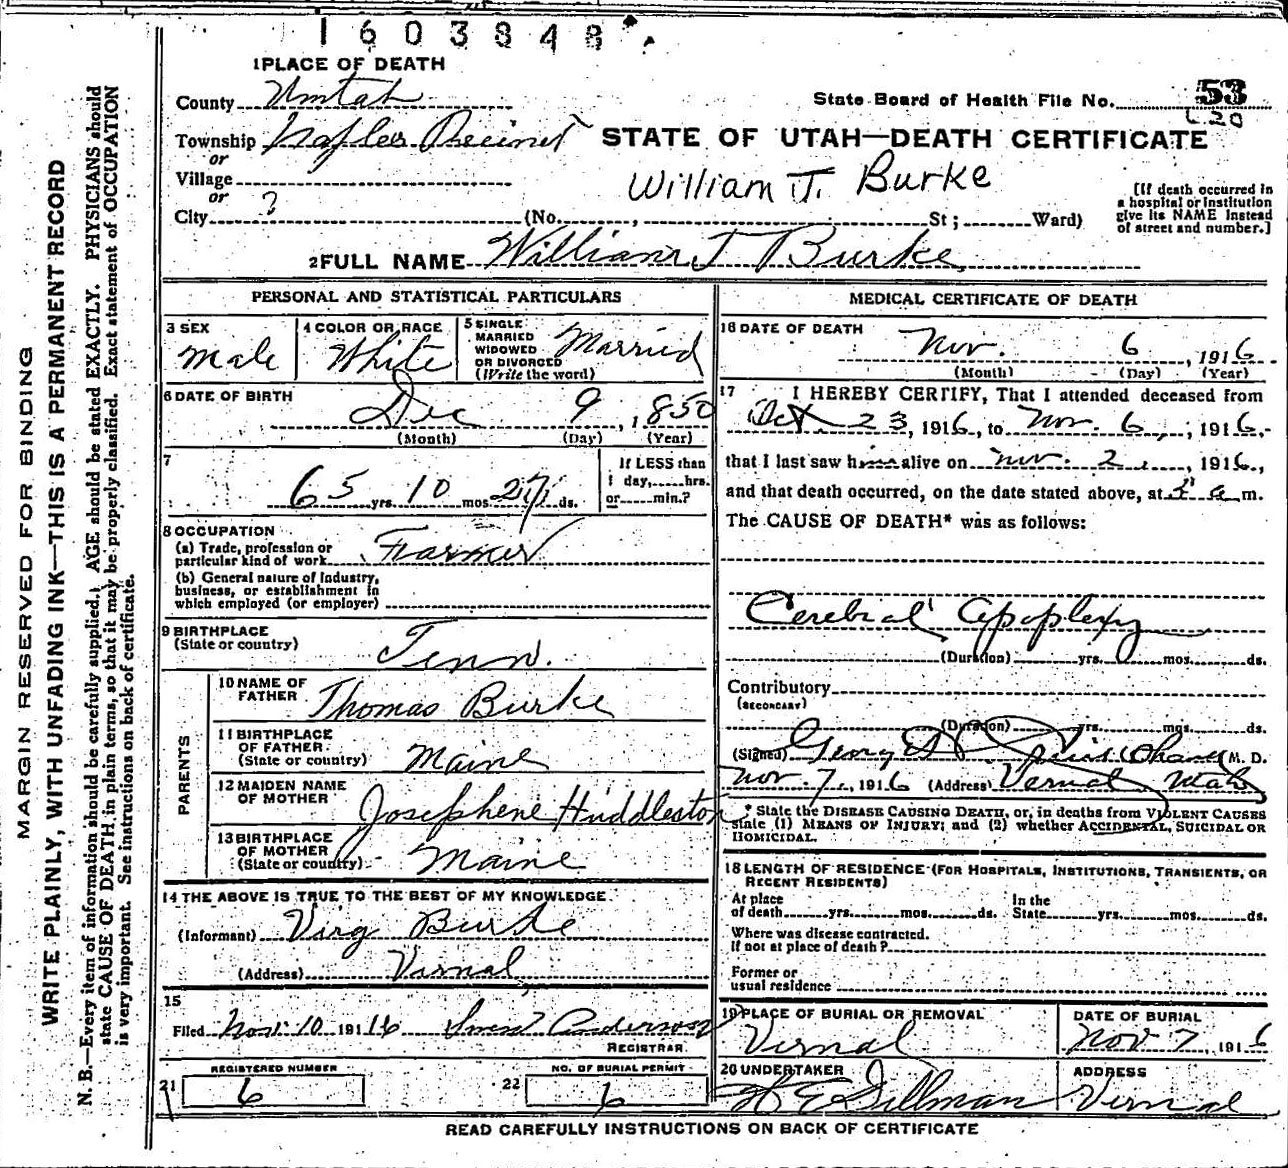 1603848
1 PLACE OF DEATH
County Uintah
State Board of Health File No. 53
Township Naples Precinct
STATE OF UTAH—DEATH CERTIFICATE
or
Village
William J. Burke
or
City ? (No. , St; Ward)
[If death occurred in
a hospital or institution
give its NAME instead
of street and number.]
2 FULL NAME William J Burke
PERSONAL AND STATISTICAL PARTICULARS
3 SEX
Male
4 COLOR OR RACE
White
5 SINGLE
MARRIED
WIDOWED
OR DIVORCED
(Write the word)
Married
6 DATE OF BIRTH
Dec 9, 1850
(Month) (Day) (Year)
7
65 yrs. 10 mos. 27 ds.
If LESS than
1 day,......hrs.
or......min.?
8 OCCUPATION
(a) Trade, profession or
particular kind of work Farmer
(b) General nature of Industry,
business, or establishment in
which employed (or employer)
9 BIRTHPLACE
(State or country)
Tenn.
PARENTS
10 NAME OF
FATHER
Thomas Burke
11 BIRTHPLACE
OF FATHER
(State or country)
Maine
12 MAIDEN NAME
OF MOTHER
Josephene Huddleston
13 BIRTHPLACE
OF MOTHER
(State or country)
Maine
14 THE ABOVE IS TRUE TO THE BEST OF MY KNOWLEDGE
(Informant) Virg Burke
(Address) Vernal
15
Filed Nov. 10 1916 Anderson
REGISTRAR
21 REGISTERED NUMBER
6
22 NO. OF BURIAL PERMIT
6
MEDICAL CERTIFICATE OF DEATH
16 DATE OF DEATH
Nov. 6, 1916
(Month) (Day) (Year)
17 I HEREBY CERTIFY, That I attended deceased from
Oct 23, 1916, to Nov. 6, 1916,
that I last saw him alive on Nov. 2, 1916,
and that death occurred, on the date stated above, at a m.
The CAUSE OF DEATH* was as follows:
Cerebral Apoplexy
(Duration) yrs. mos. ds.
Contributory
(SECONDARY)
(Duration) yrs. mos. ds.
(Signed) George M. D.
Nov. 7, 1916 (Address) Vernal Utah
* State the DISEASE CAUSING DEATH, or, in deaths from VIOLENT CAUSES
state (1) MEANS OF INJURY; and (2) whether ACCIDENTAL, SUICIDAL OR
HOMICIDAL.
18 LENGTH OF RESIDENCE (FOR HOSPITALS, INSTITUTIONS, TRANSIENTS, OR
RECENT RESIDENTS)
At place
of death......yrs......mos......ds.
In the
State......yrs......mos......ds.
Where was disease contracted.
If not at place of death?
Former or
usual residence
19 PLACE OF BURIAL OR REMOVAL
Vernal
DATE OF BURIAL
Nov 7, 1916
20 UNDERTAKER
W E Gillman
ADDRESS
Vernal
READ CAREFULLY INSTRUCTIONS ON BACK OF CERTIFICATE
MARGIN RESERVED FOR BINDING
WRITE PLAINLY, WITH UNFADING INK—THIS IS A PERMANENT RECORD
N. B.—Every item of information should be carefully supplied. AGE should be stated EXACTLY. PHYSICIANS should
state CAUSE OF DEATH in plain terms, so that it may be properly classified. Exact statement of OCCUPATION
is very important. See instructions on back of certificate.